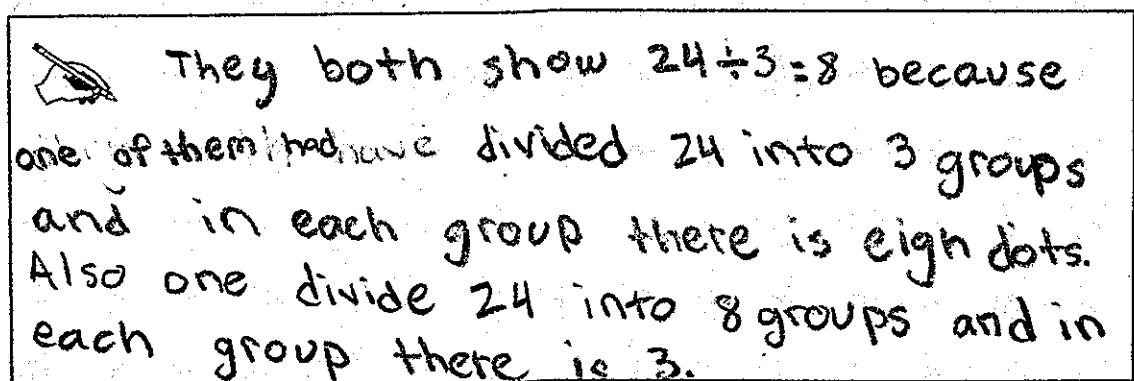 They both show 24÷3=8 because
one of them had have divided 24 into 3 groups
and in each group there is eigh dots.
Also one divide 24 into 8 groups and in
each group there is 3.